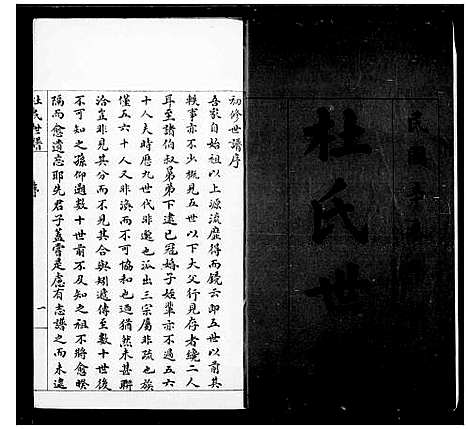 杜氏世
初修世譜序
吾家自始祖以上源流靡得而鏡云即五世以前其
軼事亦不少概見五世以下大父行見存者纔二人
耳至諸伯叔昴弟下逮已冠婚子姪輩亦不過五六
十人夫時歷九世代非邈也派出三宗屬非疏也族
僅五六十人又非渙而不可協和也迺猶然未甚聯
洽豈非見其分而不見其合與矧遞傳至數十世後
不可知之孫仰遡數十世前不及知之祖不將愈暌
隔而愈遺忘耶先君子蓋嘗是慮有志譜之而未遑
杜氏世譜 序 一